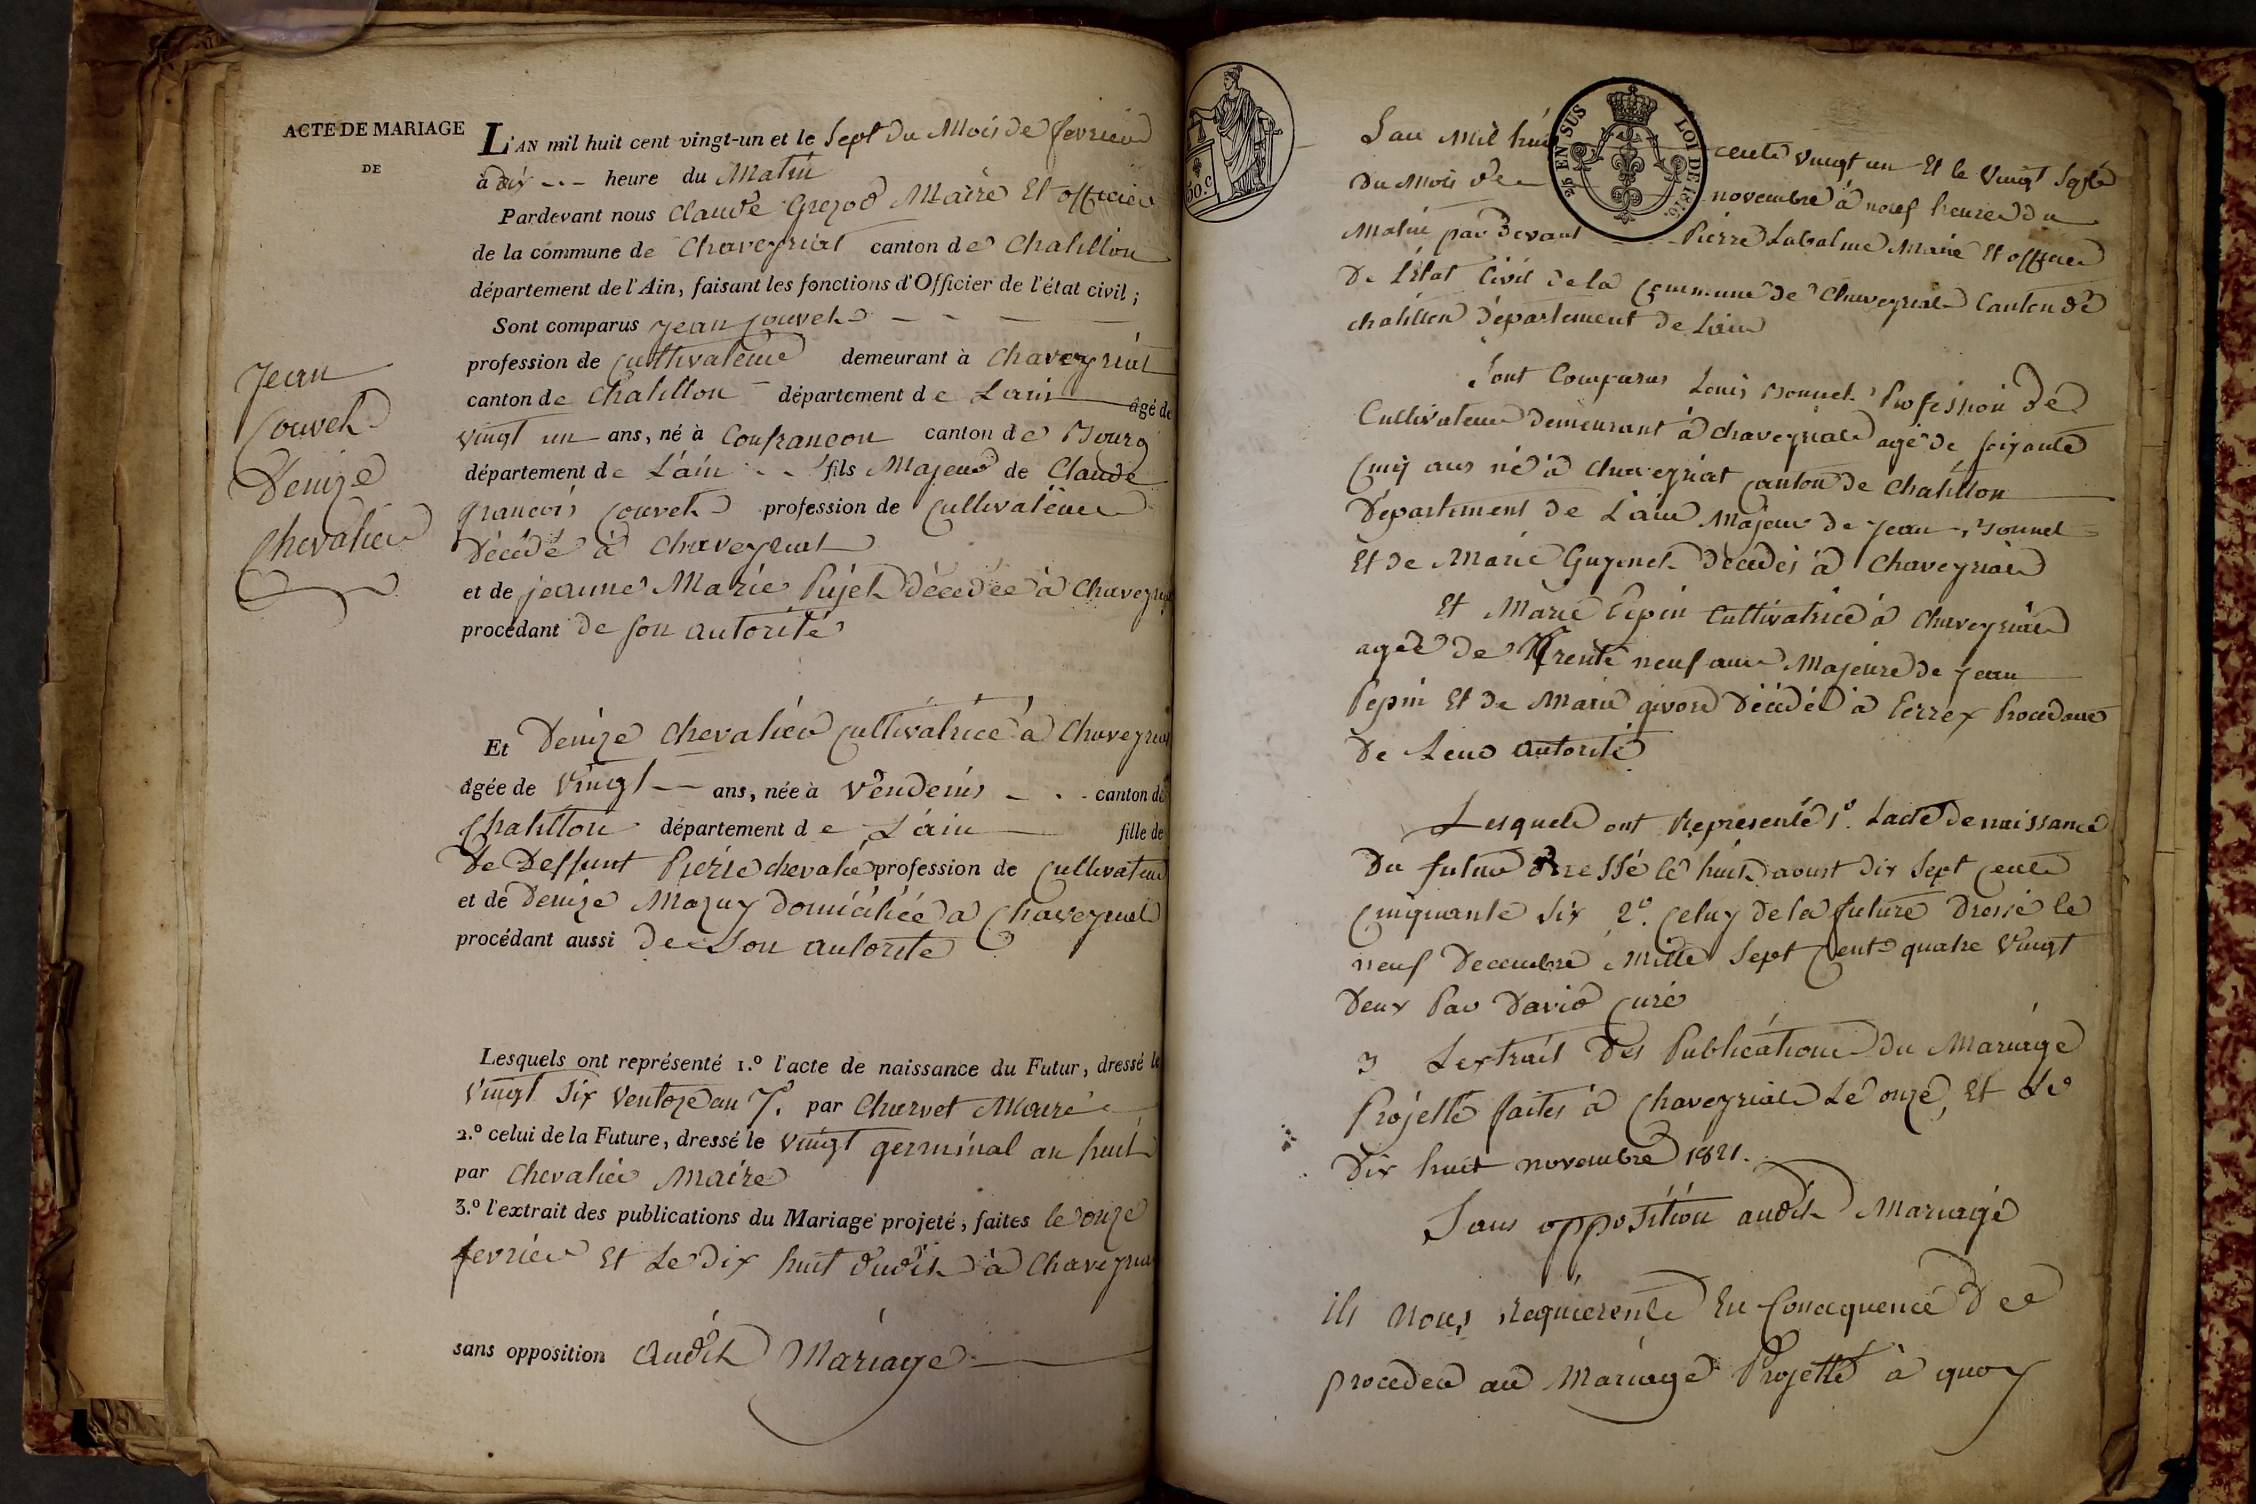 ACTE DE MARIAGE
DE
Jean
Couvet
Denize
Chevalier
L'AN mil huit cent vingt-un et le Sept du Mois de fevrier
à dix heure du Matin
Pardevant nous Claude Maire Et officier
de la commune de Chaveyriat canton de Chatillon
département de l'Ain, faisant les fonctions d'Officier de l'état civil;
Sont comparus Jean Couvet
profession de Cultivateur demeurant à Chaveyriat
canton de Chatillon département de Lain âgé de
vingt un ans, né à Confrancon canton de Bourg
département de L'ain fils Majeur de Claude
francois Couvet profession de Cultivateur
Décédé à Chaveyriat
et de jeanne Marie Pujet décédée à Chaveyriat
procédant de son autorité
Et Denize Chevalier Cultivatrice à Chaveyriat
âgée de vingt ans, née à Vendeins canton de
Chatillon département de L'ain fille de
De Deffunt Pierre chevalié profession de Cultivateur
et de Denize Mazuy Domiciliée a Chaveyriat
procédant aussi De Son autorite
Lesquels ont représenté 1.º l'acte de naissance du Futur, dressé le
vingt Six Ventoze an 7. par Charvet Maire
2.º celui de la Future, dressé le vingt germinal an huit
par Chevalier Maire
3.º l'extrait des publications du Mariage projeté, faites le onze
fevrier Et Le Dix huit dudit à Chaveyriat
sans opposition audit Mariage
30.c
25 EN SUS LOI DE 1816.
Lan Mil huit cents vingt un Et le vingt Sept
Du Mois de novembre à neuf heures du
Matin par Devant Pierre Labalme Maire Et officier
De l'Etat Civil de la Commune de Chaveyriat Canton de
chatillon département de Lain
Sont Comparus Louis Bonnet Profession de
Cultivateur demeurant à chaveyriat agé de soixante
Cinq ans né à Chaveyriat Canton de Chatillon
Département de L'ain Majeur de Jean Bonnet
Et de Marie Guyenet Décédés à Chaveyriat
Et Marie Pepin Cultivatrice à Chaveyriat
agée de Trente neuf ans Majeure de Jean
Pepin Et de Marie givord Décédée à Perrex Procedant
De Leur autorité
Lesquels ont Représenté 1º. Lacte de naissance
Du futur dressé le huit aoust Dix Sept cent
Cinquante Six 2º. Celuy de la future Dressé le
neuf Decembre Mille Sept Cent quatre Vingt
Deux Par David Curé
3 Lextrait Des Publications Du Mariage
Projetté faites à Chaveyriat Le onze, Et Le
Dix huit novembre 1821.
Sans opposition audit Mariage
ils nous Requierent En Consequence De
proceder au Mariage Projetté à quoy